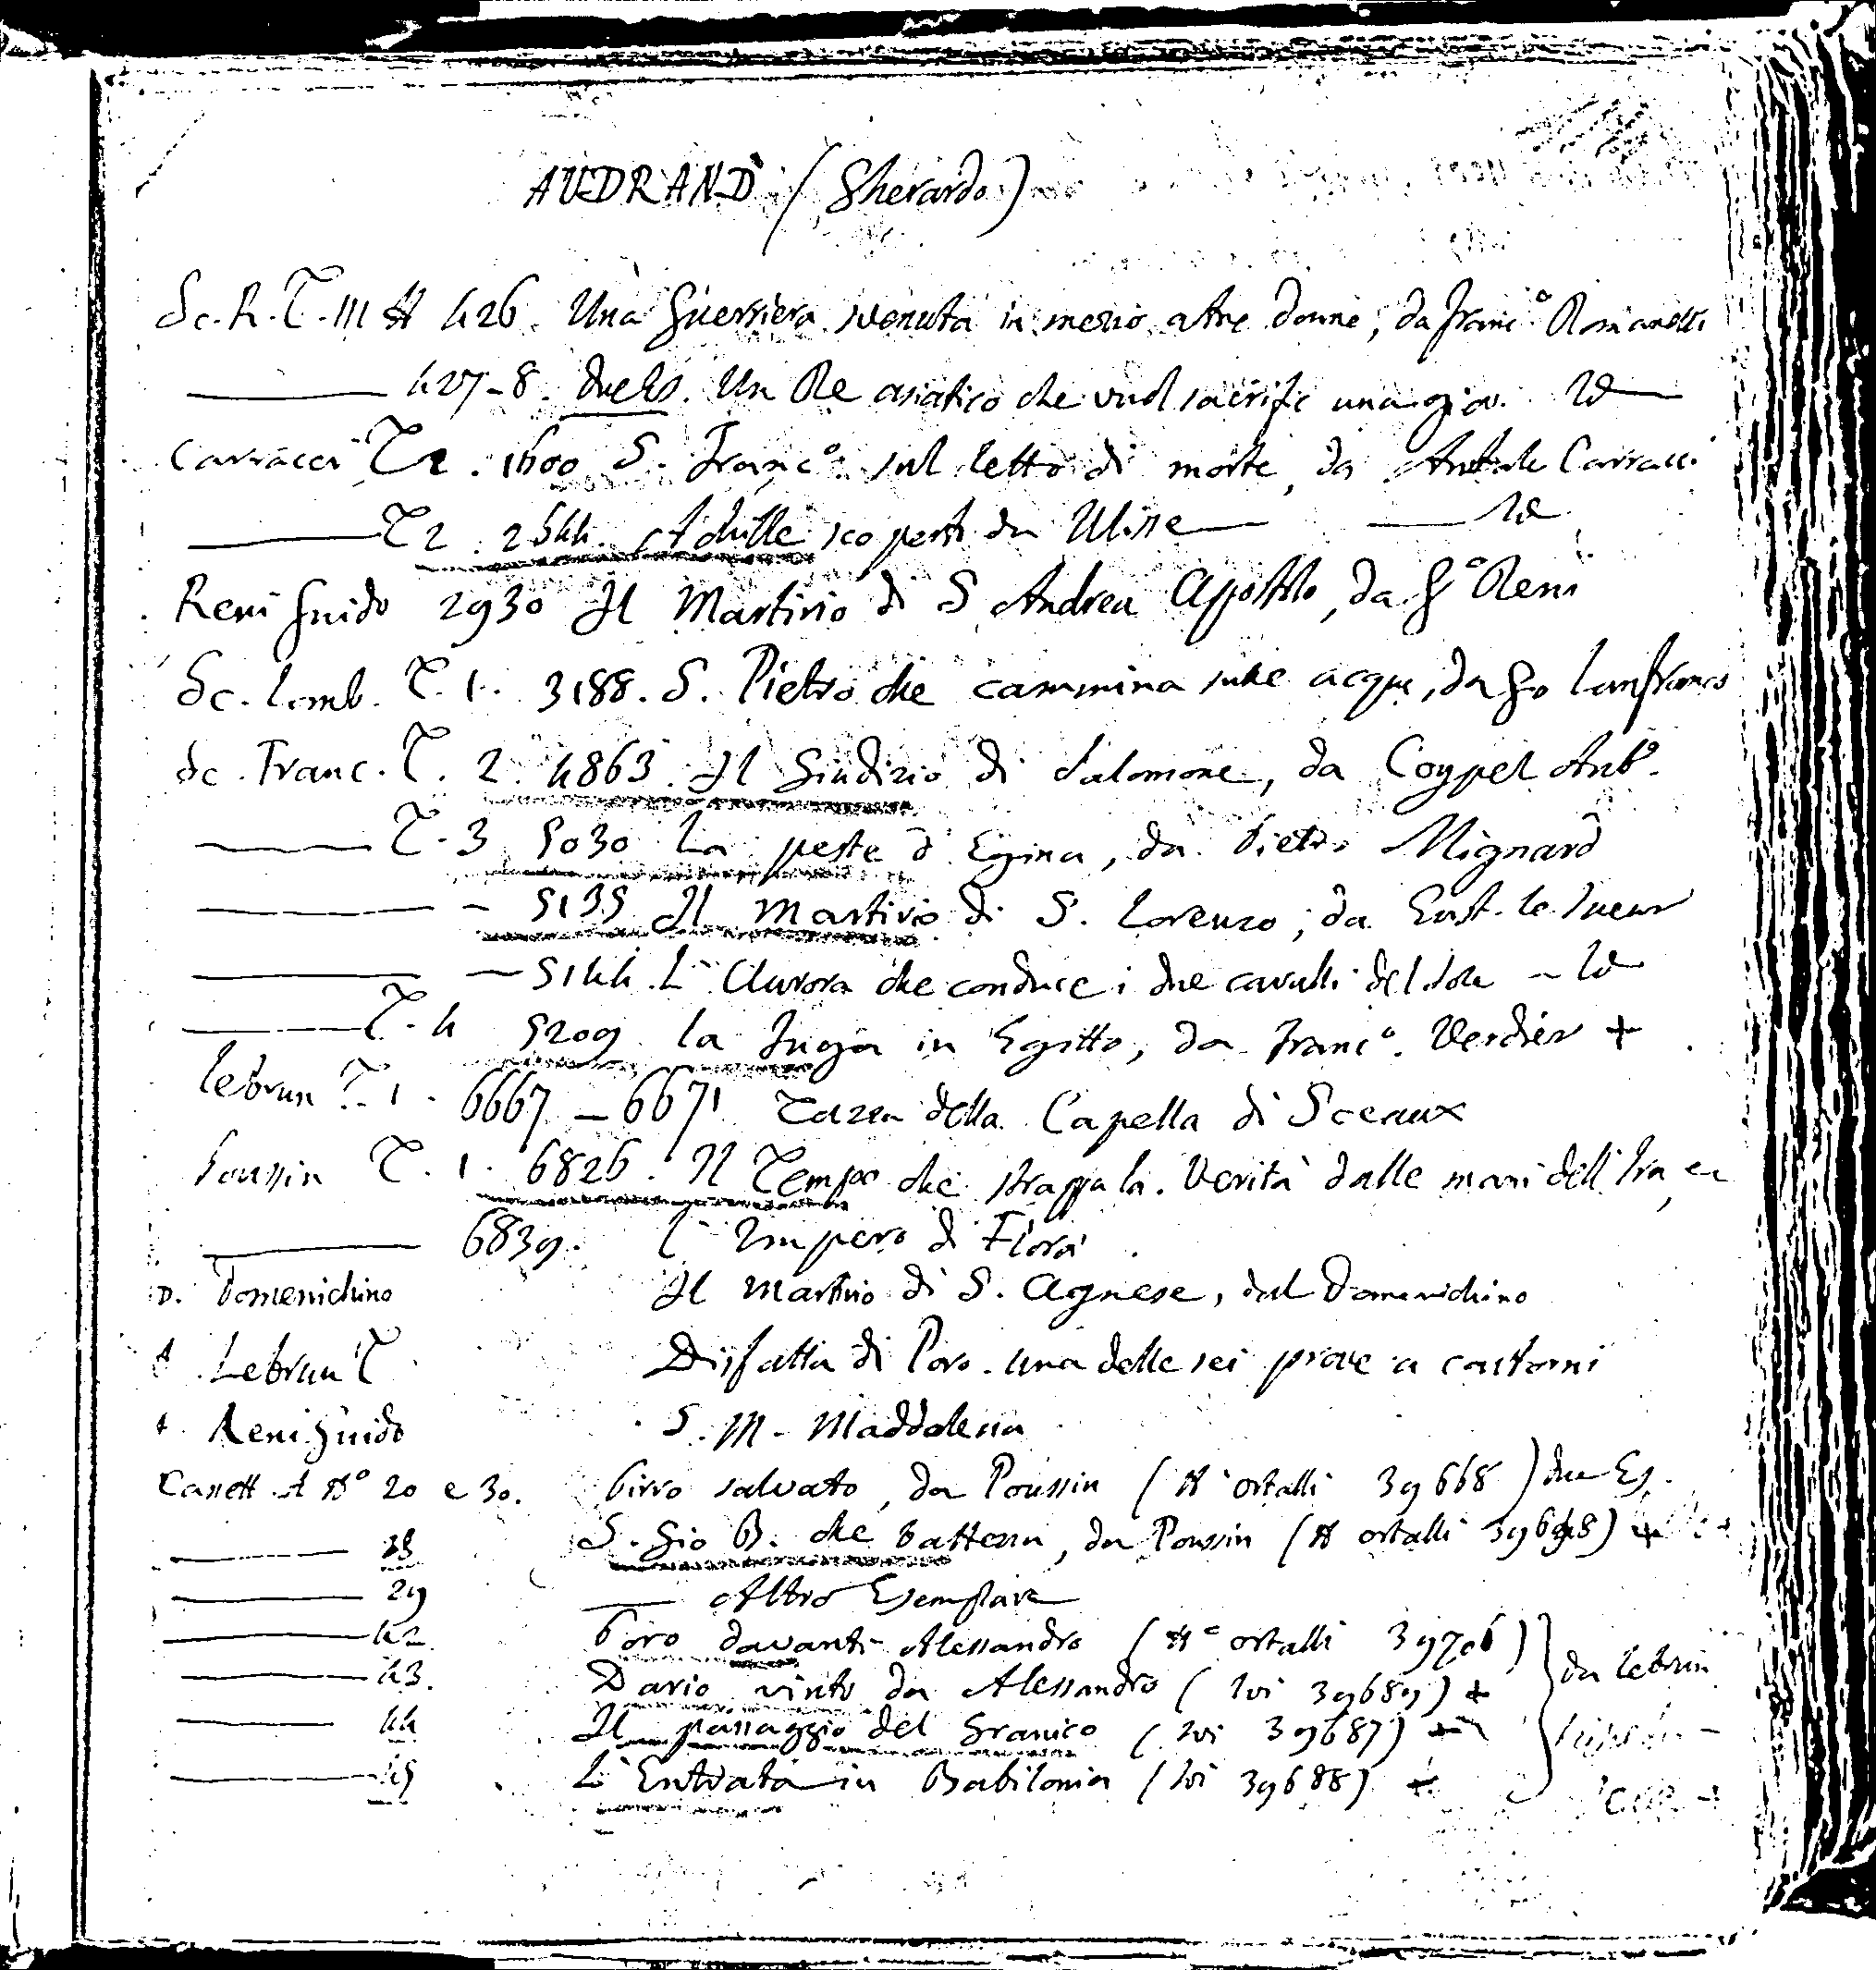 AUDRAND (Gherardo)
Sc. R. T. III N 426. Una Guerriera svenuta in mezzo a tre donne, da Franc.º Romanelli
——— 427-8. due Es. Un Re asiatico che vuol sacrific una giov. Id
Carracci T 2. 1600 S. Franc.º sul letto di morte, da Annibale Carracci
——— T 2. 2544. Achille scoperto da Ulisse — — Id
Reni Guido 2930 Il Martirio di S Andrea Appostolo, da Gº Reni
Sc. Lomb. T. 1. 3188. S. Pietro che cammina sulle acque, da Gio Lanfranco
Sc. Franc. T. 2. 4863. Il Giudizio di Salomone, da Coypel Antº.
——— T. 3 5030 La peste d'Egina, da Pietro Mignard
——— - 5135 Il Martirio di S. Lorenzo, da Eust. le Sueur
——— — 5144. L'Aurora che conduce i due cavalli del Sole - Id
——— T. 4 5209. la Fuga in Egitto, da Franc.º Verdier +
Lebrun T. 1. 6667 — 6671 Tazza della Capella di Sceaux
Poussin T. 1. 6826. Il Tempo che strappa la Verità dalle mani dell'Ira, ec
——— 6839. L'Impero di Flora
D. Domenichino Il Martirio di S. Agnese, dal Domenichino
Lebrun T Disfatta di Poro. una delle sei prove a contorni
Reni Guido S. M. Maddalena
Cassett. A Nº 20 e 30. Pirro salvato, da Poussin (N ortalli 39668) due Es.
——— 28 S. Gio B. che battezza, da Poussin (N ortalli) +
——— 29 — Altro Esemplare
——— 42 Poro davanti Alessandro (Nº ortalli 39706)
——— 43. Dario vinto da Alessandro (Ivi 39689) + } da Lebrun
——— 44 Il passaggio del Granico (Ivi 39687) +
——— 45 L'Entrata in Babilonia (Ivi 39688) +